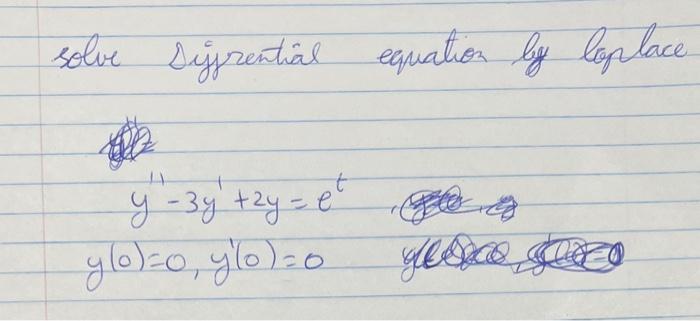 solve Diffrential equation by laplace
y'' - 3y' + 2y = e^t
y(0)=0, y'(0)=0